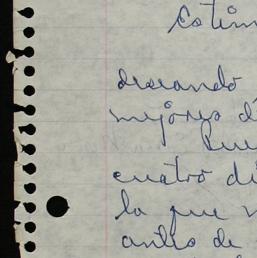 Estim
deseando
mejores d
Pue
cuatro di
la que
antes de